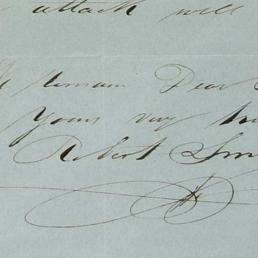 attack will
remain Dear
Yours very
Robert